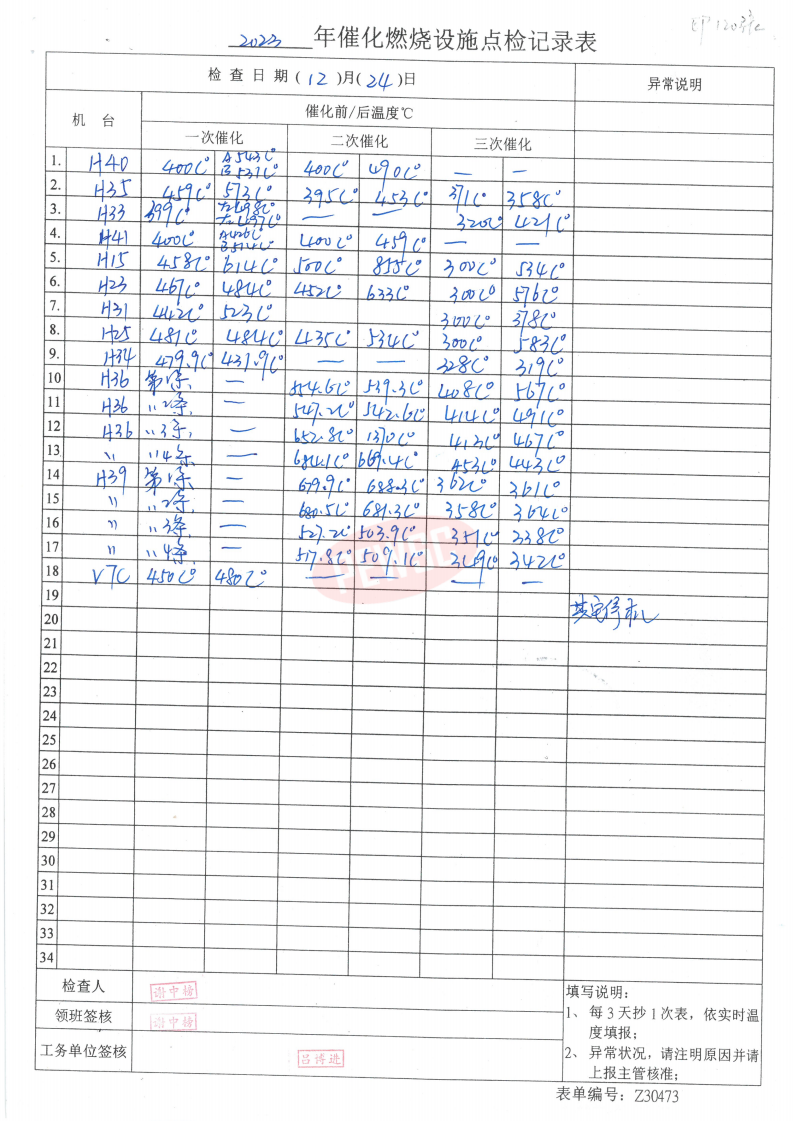 2023 年催化燃烧设施点检记录表
检查日期(12)月(24)日 异常说明
机台 催化前/后温度℃
一次催化 二次催化 三次催化
1. H40 400C° A543C° B537C° 400C° 490C° — —
2. H35 459C° 573C° 395C° 453C° 371C° 358C°
3. H33 399C° — — 320C° 421C°
4. H41 400C° 400C° 459C° — —
5. H15 458C° 614C° 500C° 855C° 300C° 534C°
6. H23 467C° 484C° 452C° 633C° 300C° 576C°
7. H31 442C° 523C° 300C° 378C°
8. H25 481C° 484C° 435C° 534C° 300C° 583C°
9. H34 479.9C° 431.9C° — — 328C° 319C°
10 H36 第1条, — 554.6C° 539.3C° 408C° 567C°
11 H36 〃2条, — 547.2C° 542.6C° 414C° 491C°
12 H36 〃3条, — 652.8C° 413C° 467C°
13 〃 〃4条 — 684.1C° 669.4C° 453C° 443C°
14 H39 第1条 — 679.9C° 688.3C° 362C° 361C°
15 〃 〃2条 — 680.5C° 681.3C° 358C° 364C°
16 〃 〃3条, — 527.2C° 503.9C° 351C° 338C°
17 〃 〃4条, — 517.8C° 509.1C° 359C° 342C°
18 V7C 450C° 480C° — — — —
19
20 其它停机
21
22
23
24
25
26
27
28
29
30
31
32
33
34
检查人 谢中榜
领班签核 谢中榜
工务单位签核 吕博进
填写说明:
1、每3天抄1次表，依实时温
度填报;
2、异常状况，请注明原因并请
上报主管核准;
表单编号: Z30473